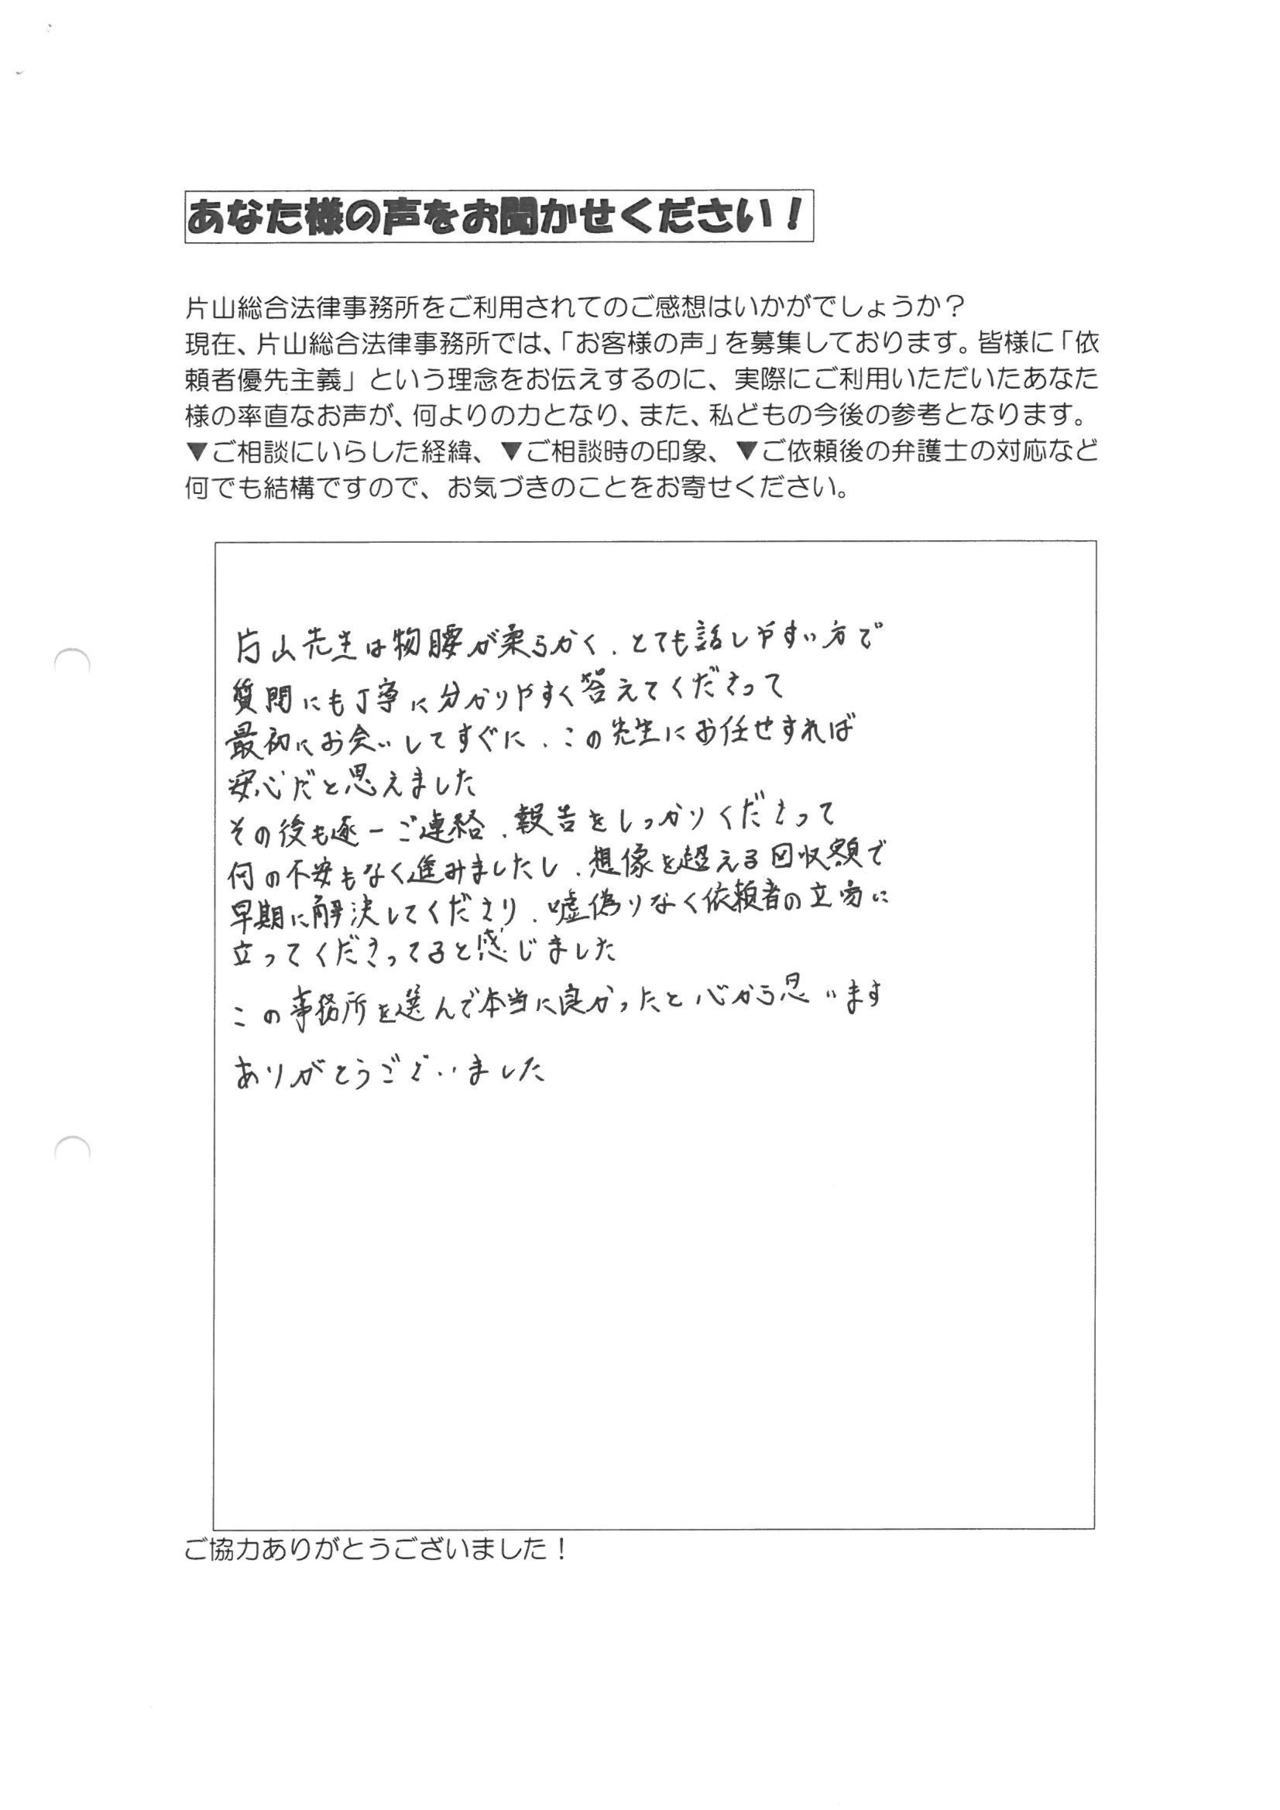 あなた様の声をお聞かせください！
片山総合法律事務所をご利用されてのご感想はいかがでしょうか？
現在、片山総合法律事務所では、「お客様の声」を募集しております。皆様に「依
頼者優先主義」という理念をお伝えするのに、実際にご利用いただいたあなた
様の率直なお声が、何よりの力となり、また、私どもの今後の参考となります。
▼ご相談にいらした経緯、▼ご相談時の印象、▼ご依頼後の弁護士の対応など
何でも結構ですので、お気づきのことをお寄せください。
片山先生は物腰が柔らかく、とても話しやすい方で
質問にも丁寧に分かりやすく答えてくださって
最初にお会いしてすぐに、この先生にお任せすれば
安心だと思えました
その後も逐一ご連絡、報告をしっかりくださって
何の不安もなく進みましたし、想像を超える回収額で
早期に解決してくださり、嘘偽りなく依頼者の立場に
立ってくださってると感じました
この事務所を選んで本当に良かったと心から思います
ありがとうございました
ご協力ありがとうございました！